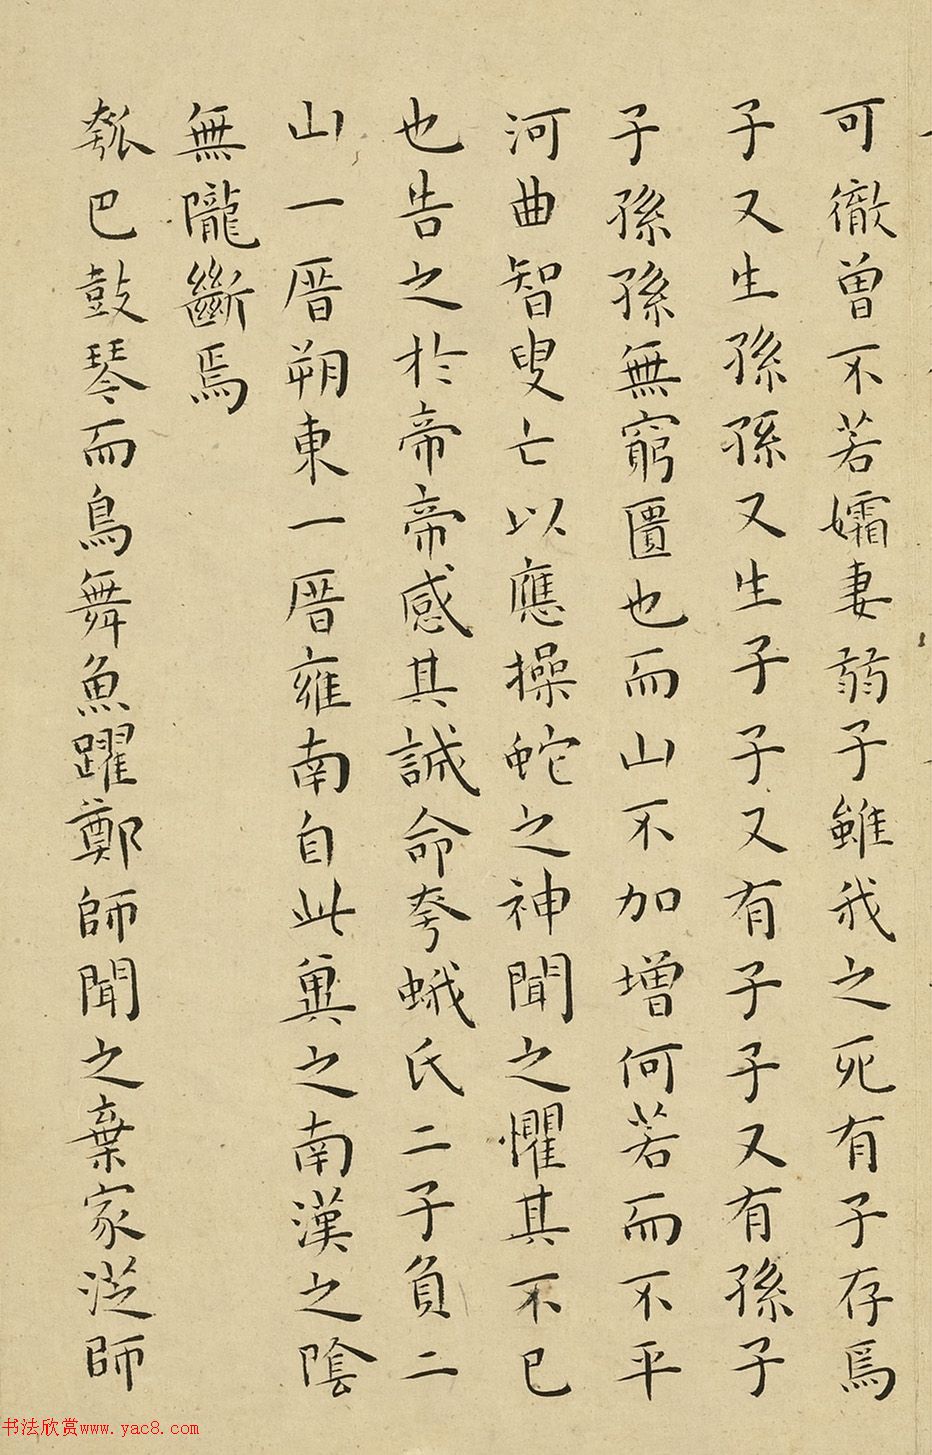 可徹曾不若孀妻弱子雖我之死有子存焉
子又生孫孫又生子子又有子子又有孫子
子孫孫無窮匱也而山不加增何若而不平
河曲智叟亡以應操蛇之神聞之懼其不已
也告之於帝帝感其誠命夸蛾氏二子負二
山一厝朔東一厝雍南自此冀之南漢之陰
無隴斷焉
瓠巴鼓琴而鳥舞魚躍鄭師聞之棄家從師
书法欣赏www.yac8.com